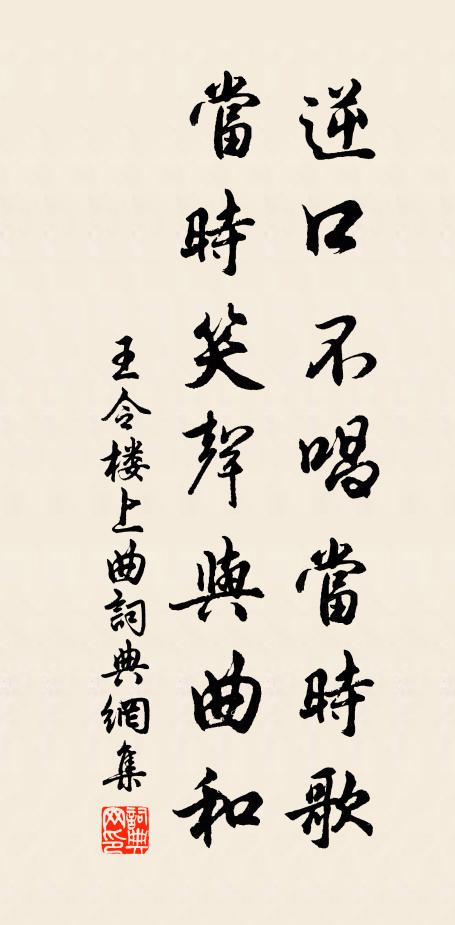 逆口不唱當時歌
當時笑聲與曲和
王令楼上曲詞典網集
詞典網印